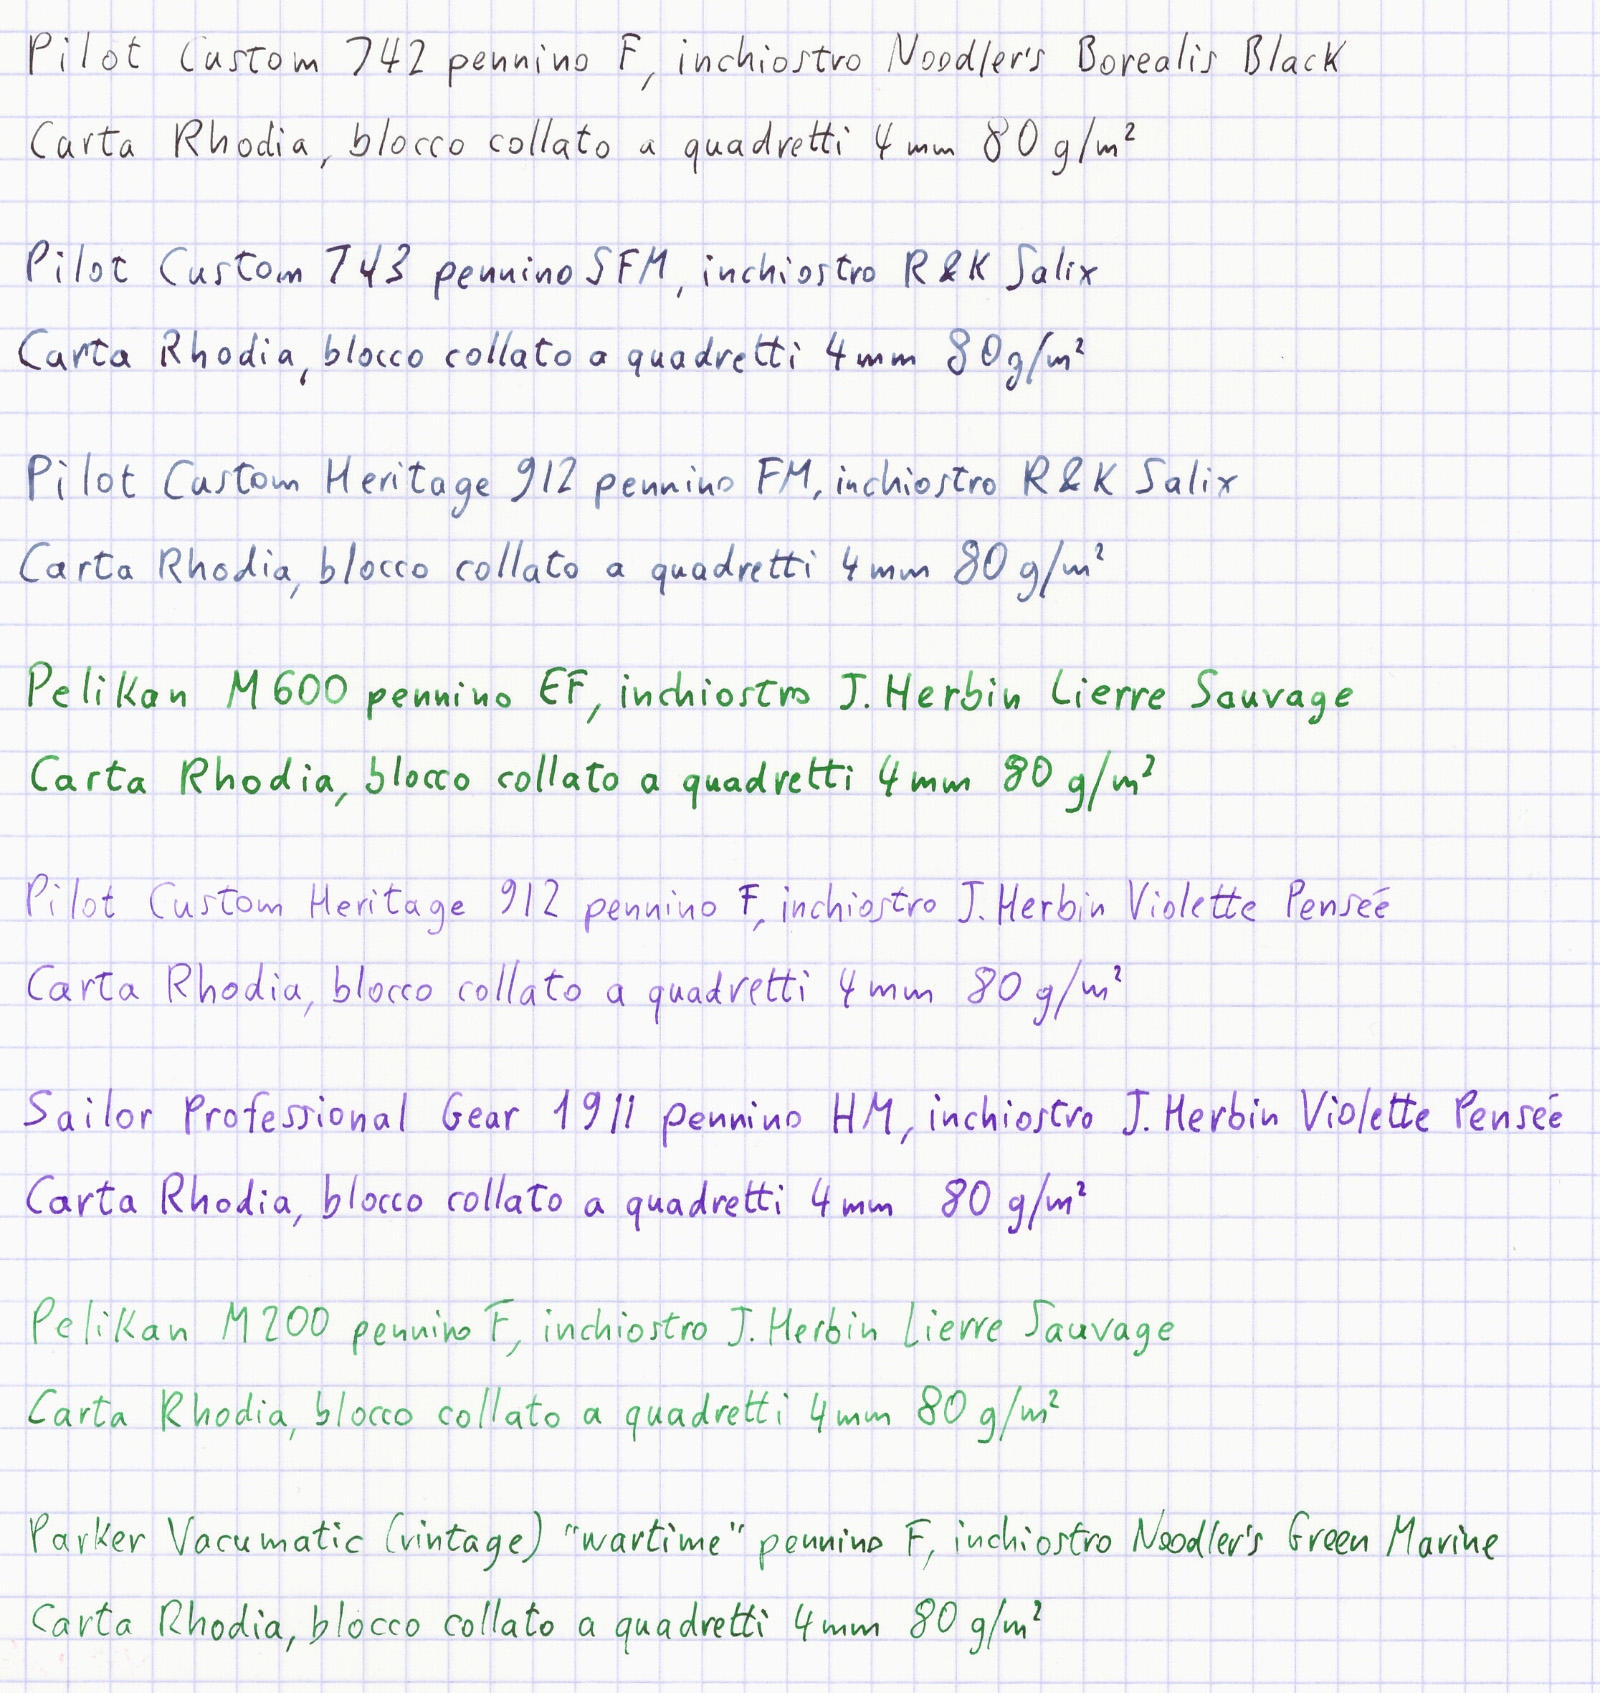 Pilot Custom 742 pennino F, inchiostro Noodler's Borealis Black
Carta Rhodia, blocco collato a quadretti 4 mm 80 g/m²
Pilot Custom 743 pennino SFM, inchiostro R&K Salix
Carta Rhodia, blocco collato a quadretti 4 mm 80 g/m²
Pilot Custom Heritage 912 pennino FM, inchiostro R&K Salix
Carta Rhodia, blocco collato a quadretti 4 mm 80 g/m²
Pelikan M600 pennino EF, inchiostro J. Herbin Lierre Sauvage
Carta Rhodia, blocco collato a quadretti 4 mm 80 g/m²
Pilot Custom Heritage 912 pennino F, inchiostro J. Herbin Violette Penseé
Carta Rhodia, blocco collato a quadretti 4 mm 80 g/m²
Sailor Professional Gear 1911 pennino HM, inchiostro J. Herbin Violette Penseé
Carta Rhodia, blocco collato a quadretti 4 mm 80 g/m²
Pelikan M200 pennino F, inchiostro J. Herbin Lierre Sauvage
Carta Rhodia, blocco collato a quadretti 4 mm 80 g/m²
Parker Vacumatic (vintage) "wartime" pennino F, inchiostro Noodler's Green Marine
Carta Rhodia, blocco collato a quadretti 4 mm 80 g/m²